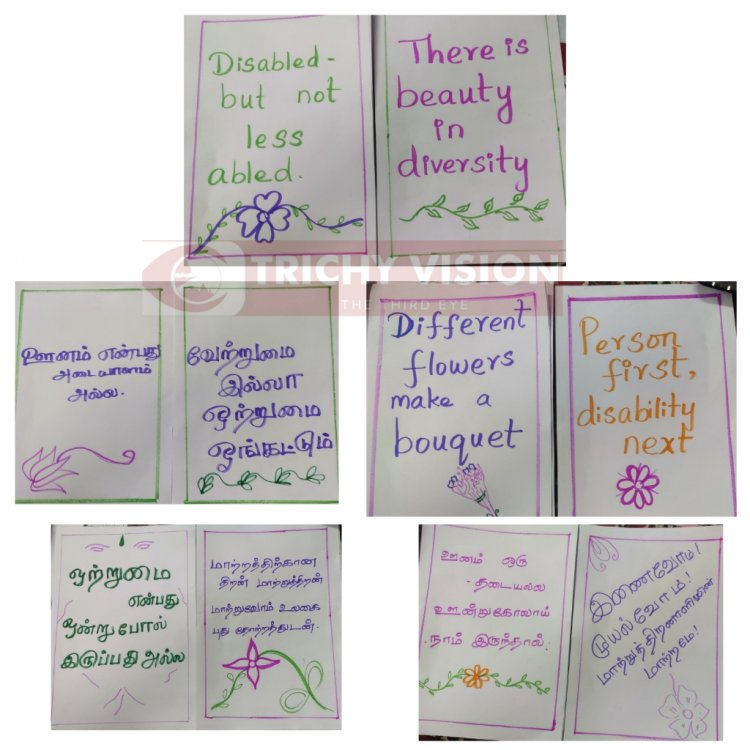 Disabled -
but not
less
abled.
There is
beauty
in
diversity
TRICHY VISION
THE THIRD EYE
ஊனம் என்பது
அடையாளம்
அல்ல.
வேற்றுமை
இல்லா
ஒற்றுமை
ஓங்கட்டும்
Different
flowers
make a
bouquet
Person
first,
disability
next
ஒற்றுமை
என்பது
ஒன்று போல்
இருப்பது அல்ல
மாற்றத்திற்கான
திறன் மாற்றுத்திறன்
மாற்றுவோம் உலகை
புது தோற்றத்துடன்.
ஊனம் ஒரு
தடையல்ல
ஊன்றுகோலாய்
நாம் இருந்தால்.
இணைவோம்!
முயல்வோம்!
மாற்றமே!